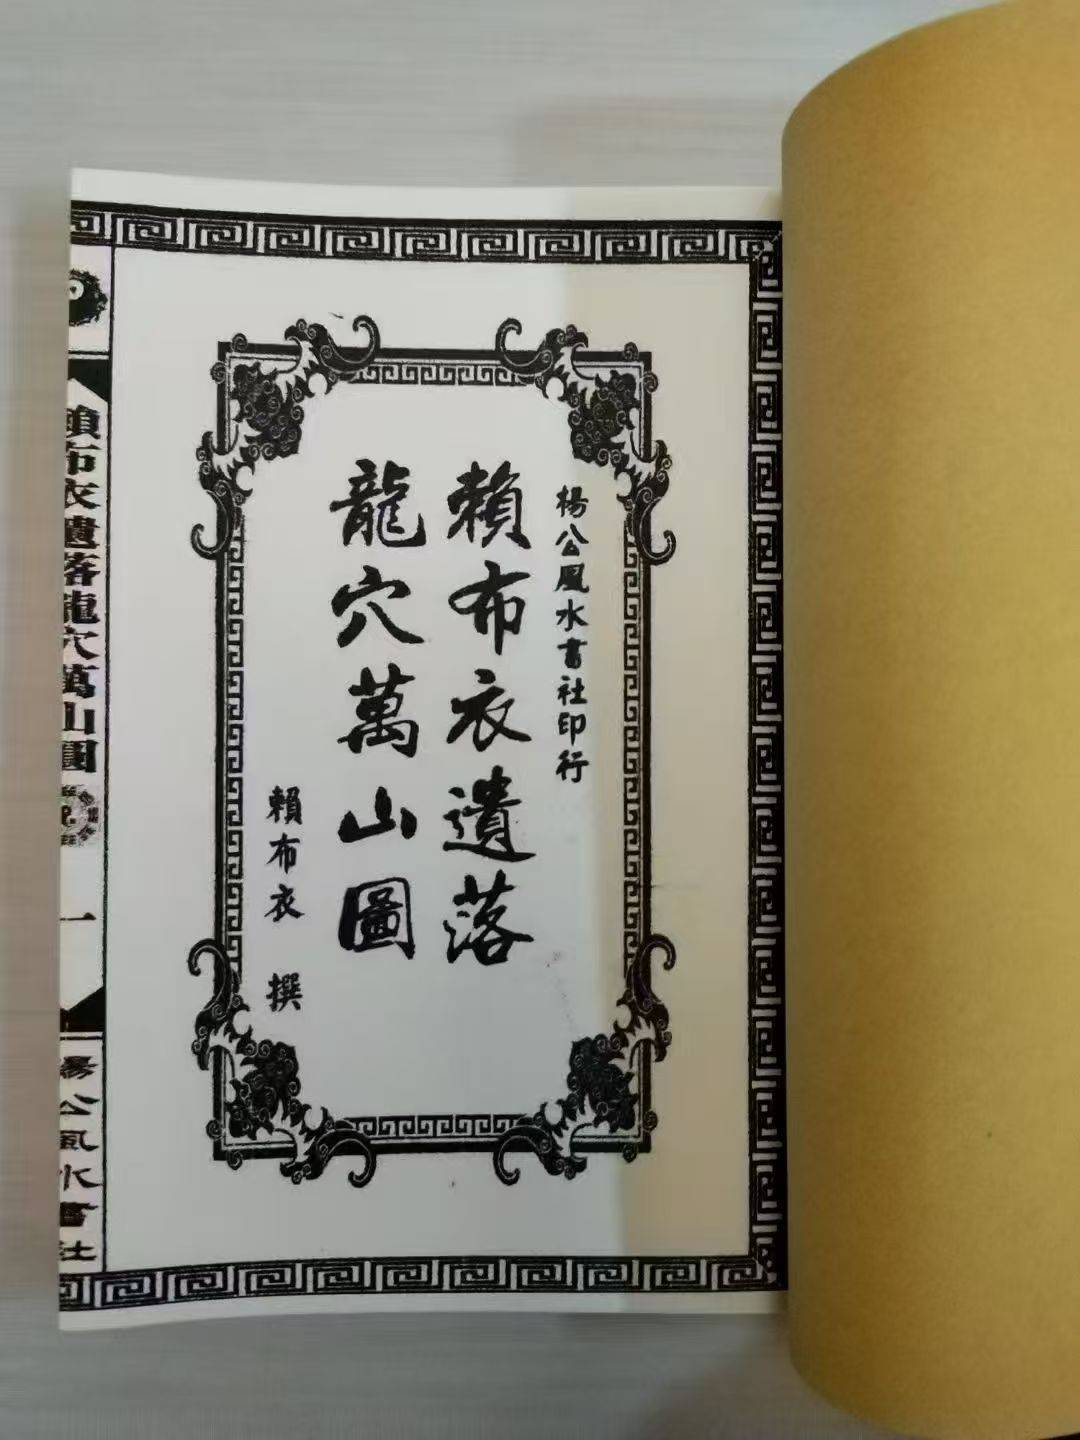 楊公風水書社印行
賴布衣遺落
龍穴萬山圖
賴布衣 撰
賴布衣遺落龍穴萬山圖
一
楊公風水書社